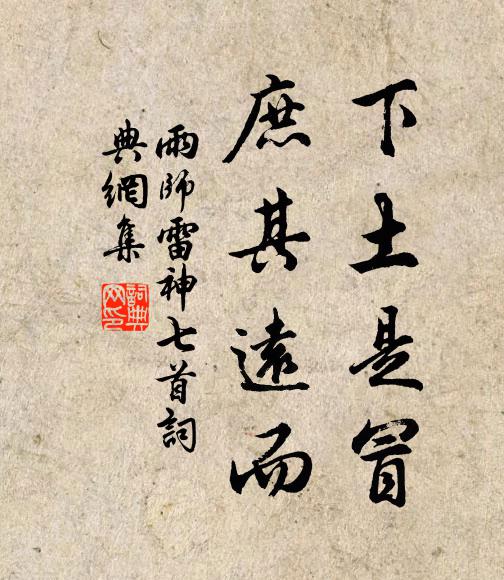 下土是冒
庶其遠而
雨師雷神七首詞
典網集
詞典
網印